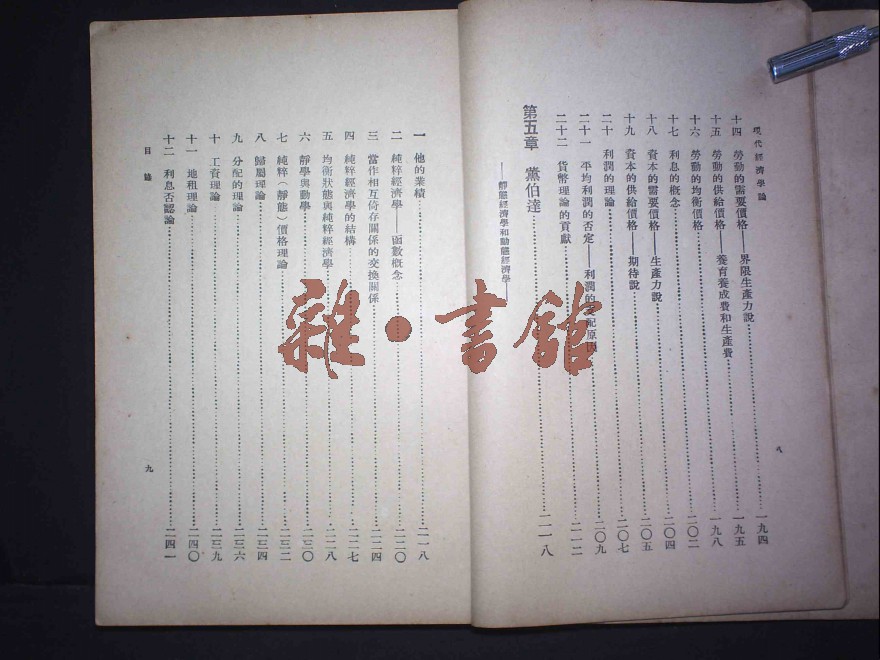 現代經濟學論
十四 勞動的需要價格——界限生產力說……一九四
十五 勞動的供給價格——養育養成費和生產費……一九五
十六 勞動的均衡價格……一九八
十七 利息的概念……二〇二
十八 資本的需要價格——生產力說……二〇四
十九 資本的供給價格——期待說……二〇五
二十 利潤的理論……二〇七
二十一 平均利潤的否定——利潤的配原……二〇九
二十二 貨幣理論的貢獻……二一二
第五章 薰伯達……二一八
——靜態經濟學和動態經濟學——
八
一 他的業績……二一八
二 純粹經濟學——函數概念……二二〇
三 當作相互倚存關係的交換關係……二二四
四 純粹經濟學的結構……二二七
五 均衡狀態與純粹經濟學……二二八
六 靜學與動學……二三〇
七 純粹（靜態）價格理論……二三二
八 歸屬理論……二三四
九 分配的理論……二三六
十 工資理論……二三九
十一 地租理論……二四〇
十二 利息否認論……二四一
目錄
九
雜·書館